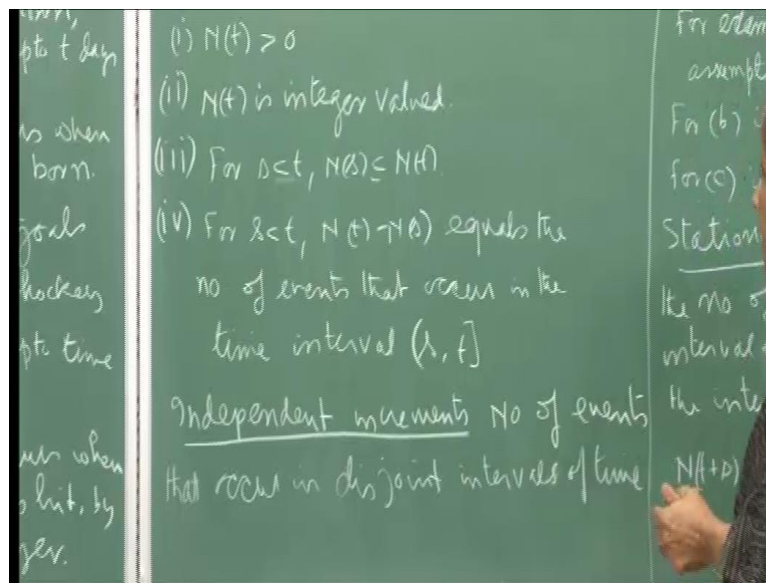 pto t days
is when
born.
goals
hockey
pto time
when
hit, by
(i) N(t) > 0
(ii) N(t) is integer valued.
(iii) For s<t, N(s) ≤ N(t)
(iv) For s<t, N(t)-N(s) equals the
no of events that occur in the
time interval (s, t]
Independent increments No of events
that occur in disjoint intervals of time
For exam
assumpt
For (b)
for (c)
Station
the no of
interval
the inte
N(t+s)